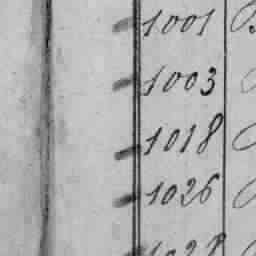 1001
1003
1018
1026
1028